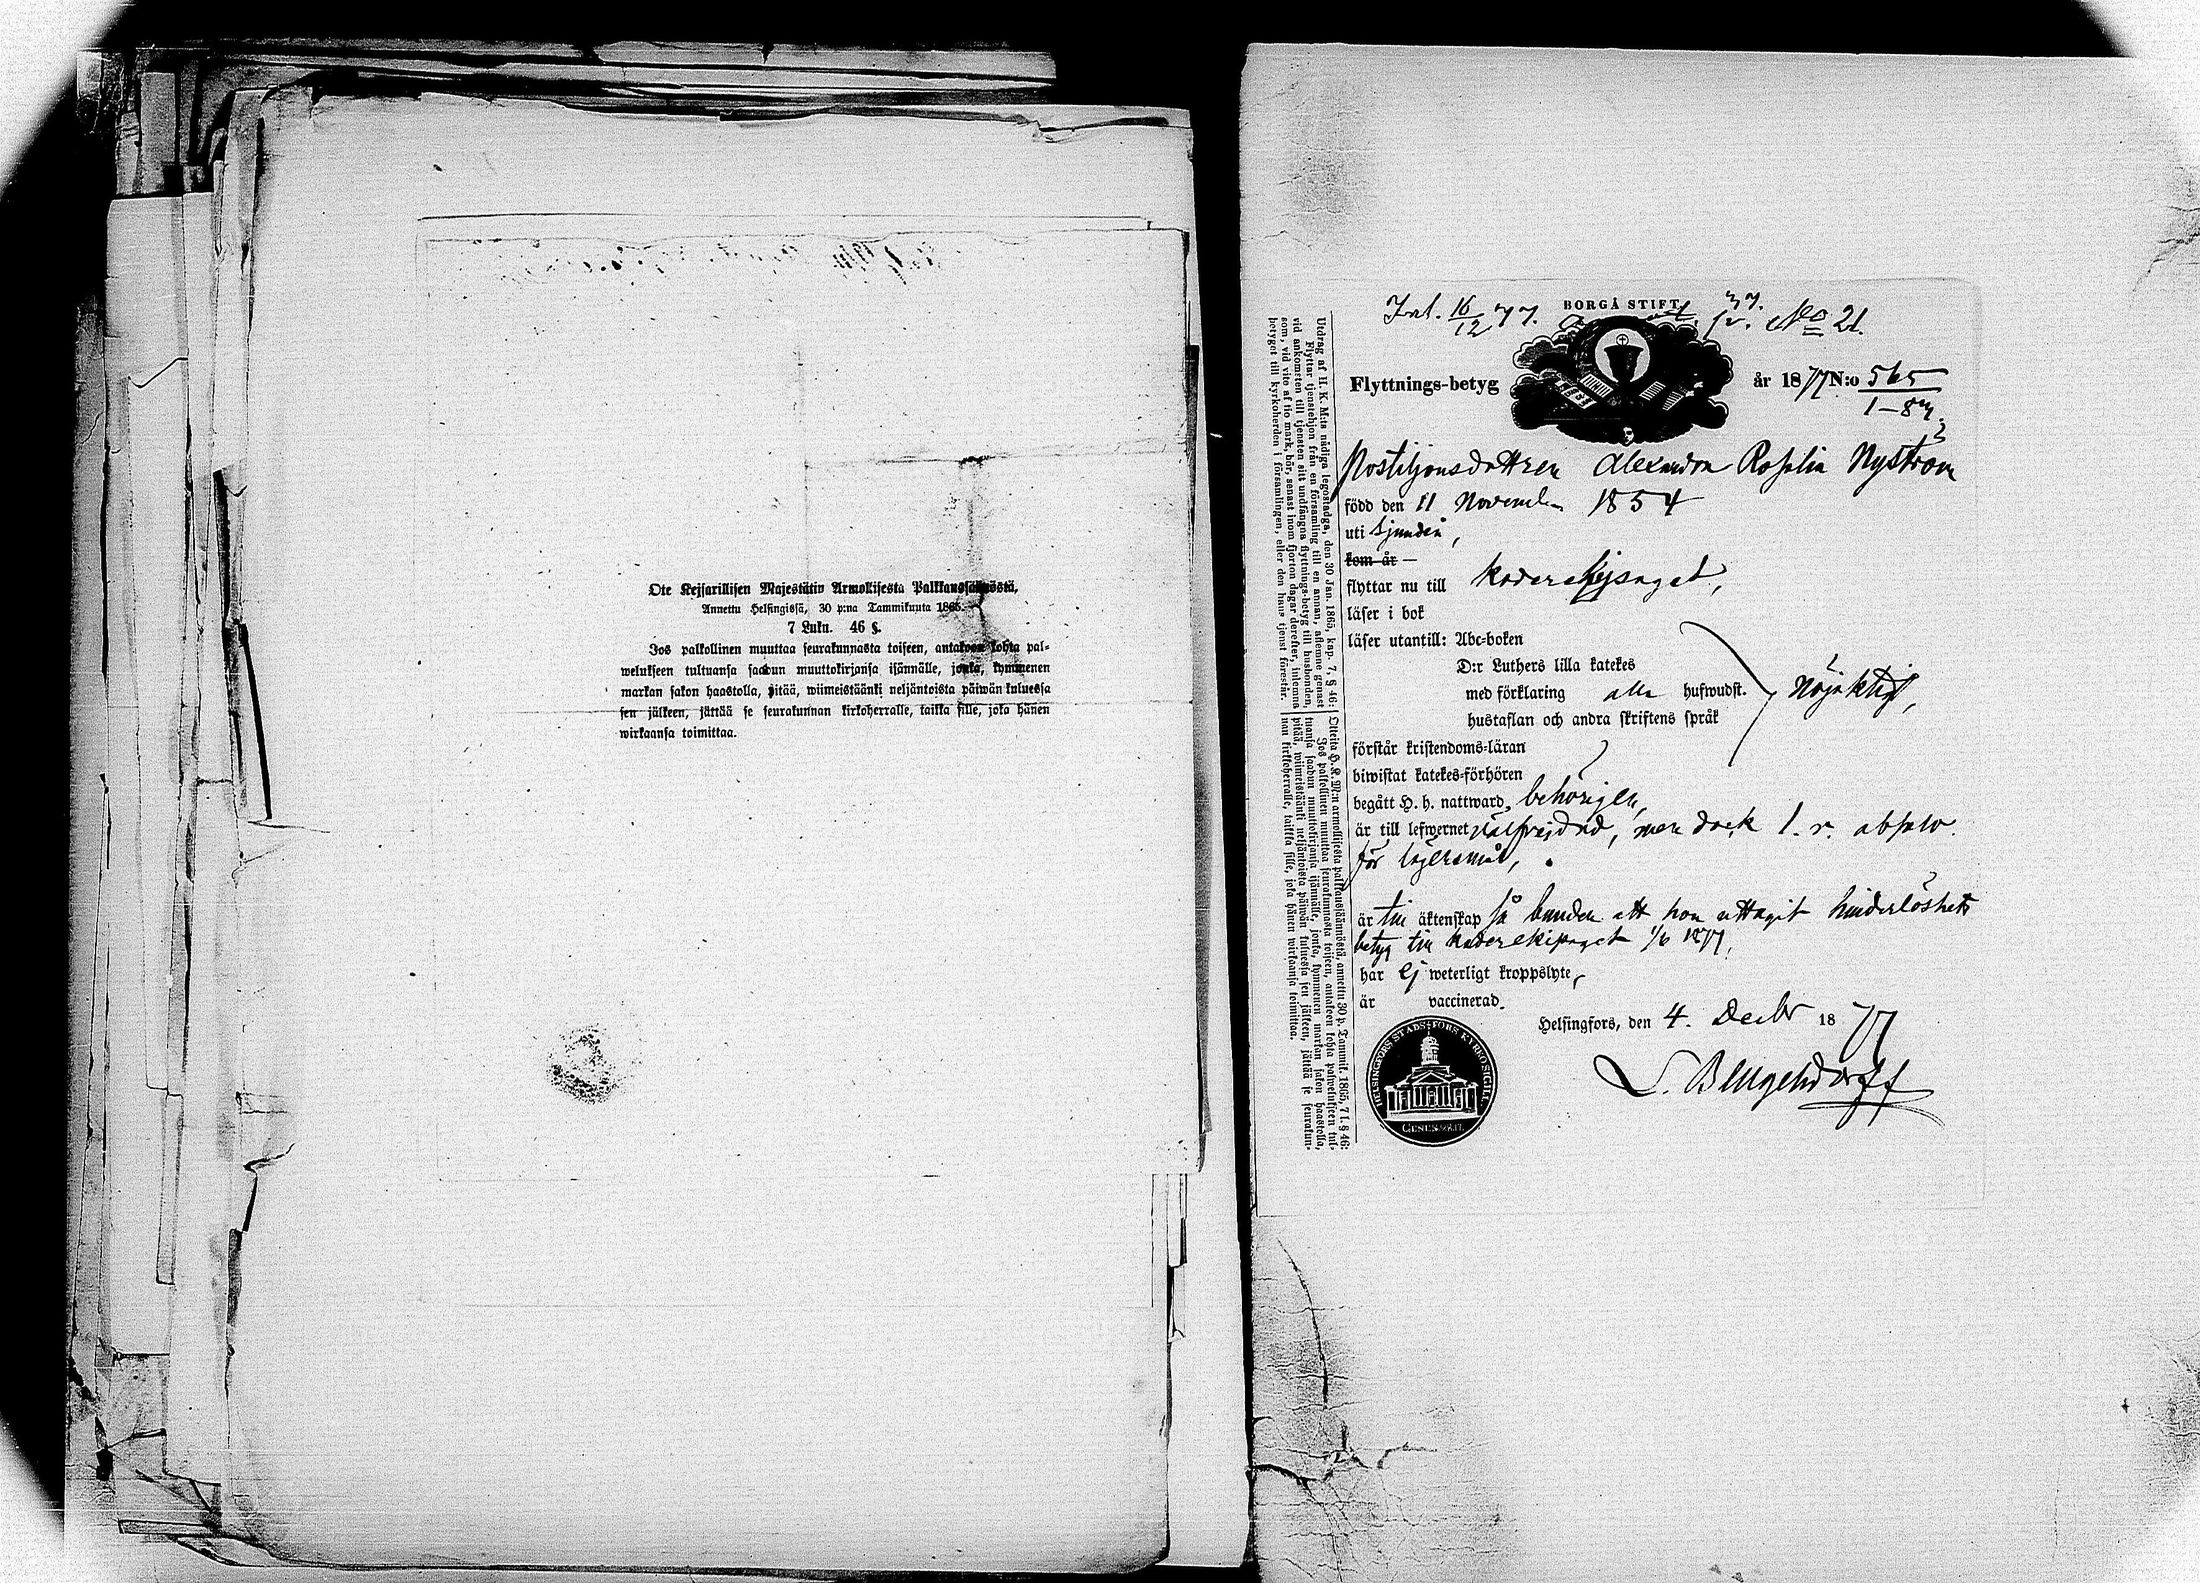 Ote Keisarillisen Majestätin Armollisesta Palkkaussäännöstä,
Annettu Helsingissä, 30 p:nä Tammikuuta 1865.
7 Luku. 46 §.
Jos palkollinen muuttaa seurakunnasta toiseen, antakoon kohta pal-
welukseen tultuansa saadun muuttokirjansa isännälle, jonka, kymmenen
markan sakon haastolla, pitää, wiimeistäänki neljäntoista päiwän kuluessa
sen jälkeen, jättää se seurakunnan kirkoherralle, taikka sille, joka hänen
wirkaansa toimittaa.
BORGÅ STIFT.
Inl. 16/12 77. No 21.
Flyttnings-betyg år 1877 N:o 565
1–87
Postiljonsdottren Alexandra Rosalia Nyström
född den 11 November 1854
uti Sjundeå,
kom år —
flyttar nu till Kaderekipaget,
läser i bok
läser utantill: Abc-boken
D:r Luthers lilla katekes
med förklaring alla hufwudst. Nöjaktigt,
hustaflan och andra skriftens språk
förstår kristendoms-läran
biwistat katekes-förhören
begått H. h. nattward, behörigen,
är till lefwernet välfrejdad, men dock 1. r. absolv.
för lägersmål,
är till äktenskap så bunden att hon uttagit hinderlöshets
betyg till Kaderekipaget 1/6 1877,
har ej weterligt kroppslyte,
är vaccinerad.
Helsingfors, den 4. Decbr 1877
L. Bengelsdorff
HELSINGFORS STADS-FÖRS KYRKO SIGILL
Utdrag af H. K. M:ts nådiga legostadga, den 30 Jan. 1865, kap. 7, § 46:
Flyttar tjenstehjon från en församling till en annan, aflemne genast
vid ankomsten till tjensten sitt undfångna flyttnings-betyg till husbonden,
som, vid vite af tio mark, bör, senast inom fjorton dagar derefter, inlemna
betyget till kyrkoherden i församlingen, eller den hans tjenst förestår.
Otteita H. K. M:n armollisesta palkkaussäännöstä, annettu 30 p. Tammik. 1865, 7 l. § 46:
Jos palkollinen muuttaa seurakunnasta toiseen, antakoon kohta palwelukseen tul-
tuansa saadun muuttokirjansa isännälle, jonka, kymmenen markan sakon haastolla,
pitää, wiimeistäänki neljäntoista päiwän kuluessa sen jälkeen, jättää se seurakun-
nan kirkkoherralle, taikka sille, joka hänen wirkaansa toimittaa.